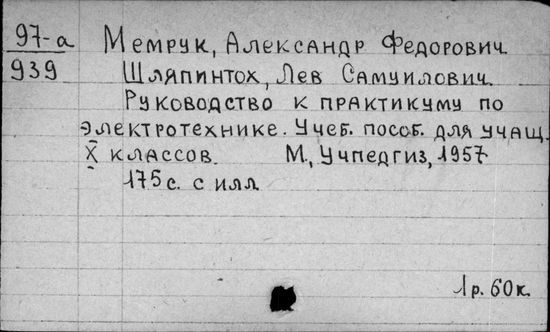 97-а Мемрук, Александр Федорович
939 Шляпинтох, Лев Самуилович
Руководство к практикуму по
электротехнике. Учеб. пособ. для учащ.
X классов. М., Учпедгиз, 1957
175 с. с илл.
1р. 60к.